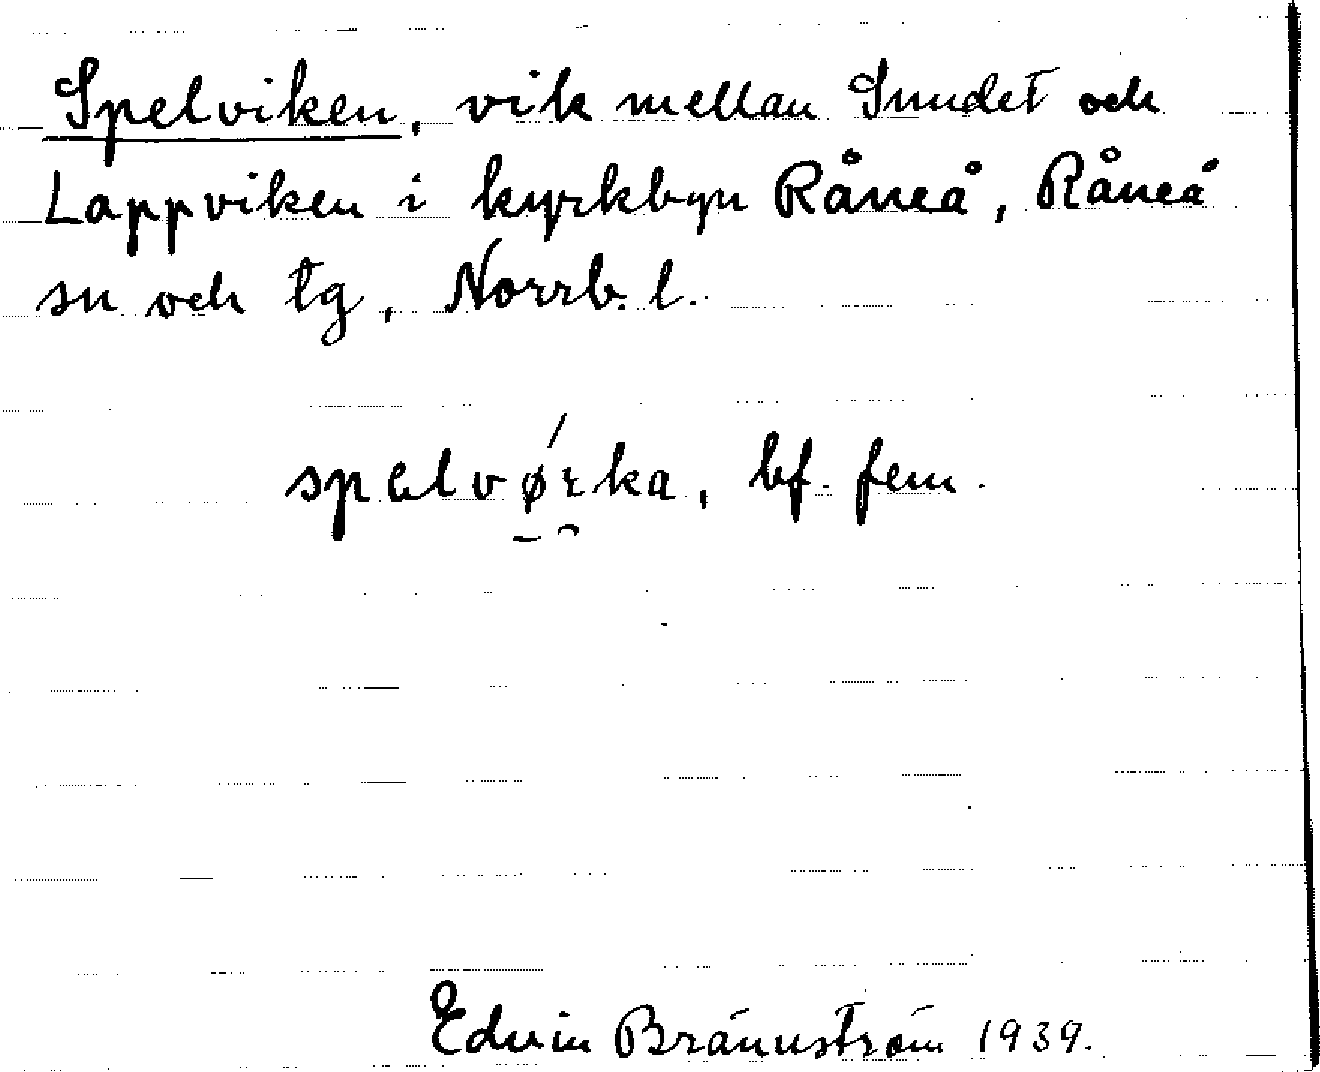 Spelviken, vik mellan Sundet och
Lappviken i kyrkbyn Råneå, Råneå
sn och tg, Norrb. l.
spelvǿrka, bf. fem.
Edvin Brännström 1939.